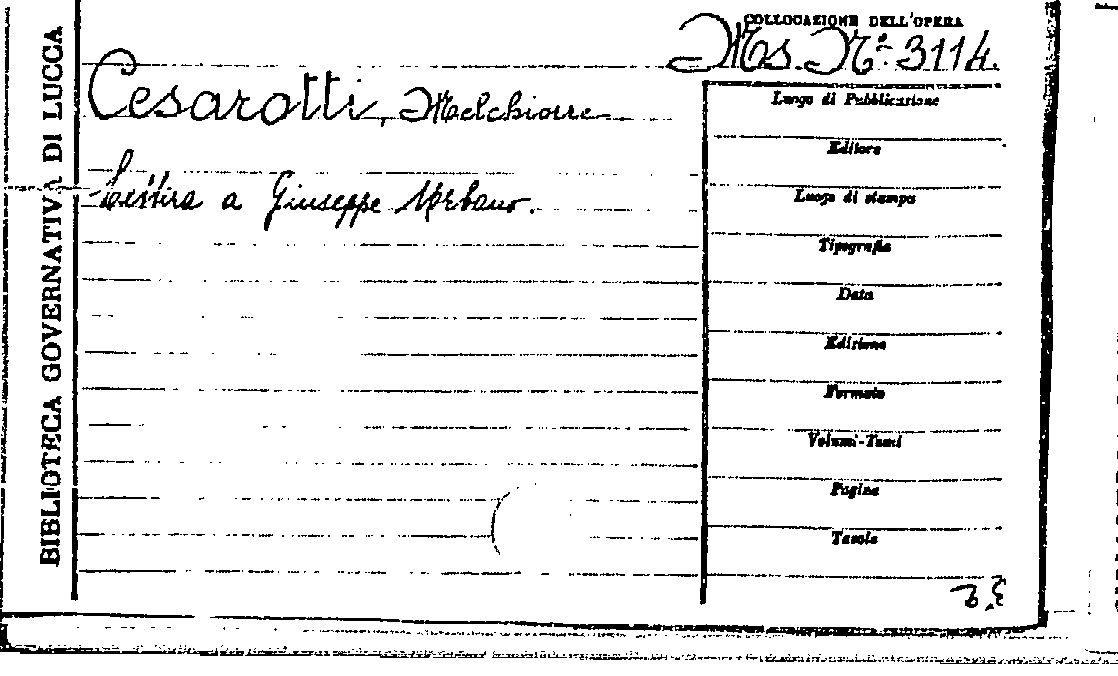 BIBLIOTECA GOVERNATIVA DI LUCCA
COLLOCAZIONE DELL'OPERA
Ms. N.º 3114.
Cesarotti, Melchiorre
Lettera a Giuseppe Urbano.
Luogo di Pubblicazione
Editore
Luogo di stampa
Tipografia
Data
Edizione
Formato
Volumi-Tomi
Pagine
Tavole